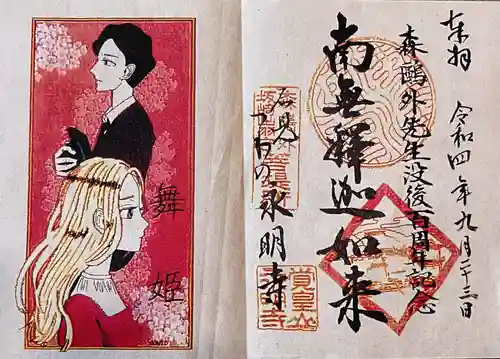 奉拝
令和四年九月二十三日
森鷗外先生没後百周年記念
南無釋迦如来
石見
つわの
永明寺
舞姫